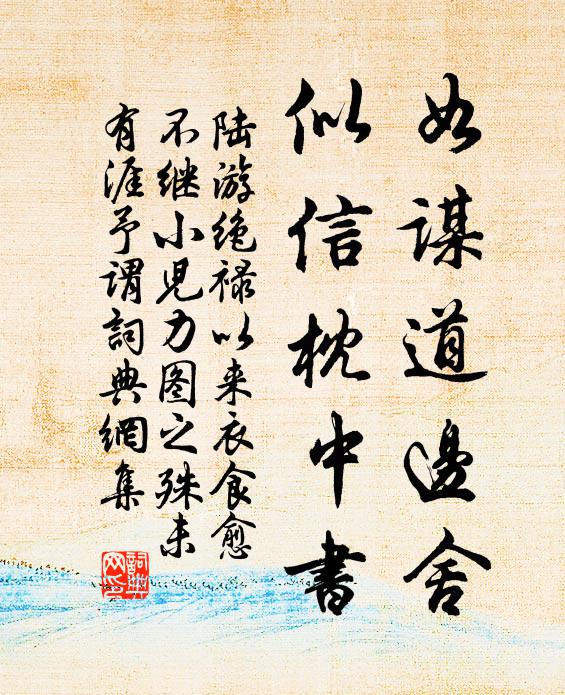 如谋道邊舍
似信枕中書
陆游绝禄以来衣食愈
不继小児力图之殊未
有涯予谓詞典網集
詞典
网